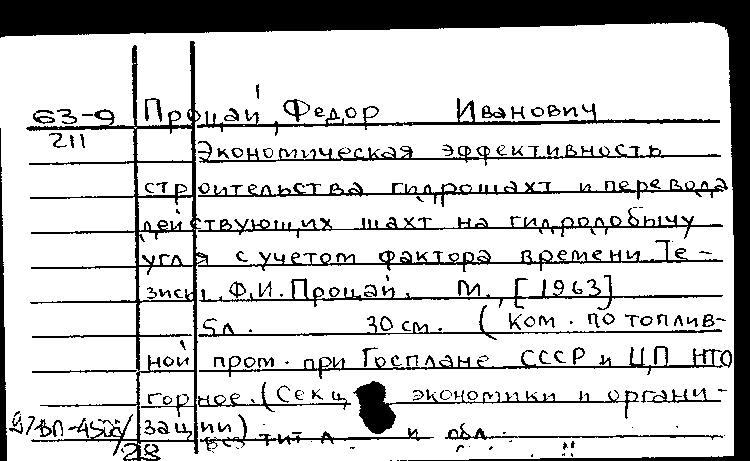 63-9 Процай, Федор Иванович
211
Экономическая эффективность
строительства гидрошахт и перевода
действующих шахт на гидродобычу
угля с учетом фактора времени. Те-
зисы. Ф.И. Процай. М., [1963]
5л. 30 см. (Ком. по топлив-
ной пром. при Госплане СССР и ЦП НТО
горное. (Секц. экономики и органи-
зации)
Без тит л. и обл.
28